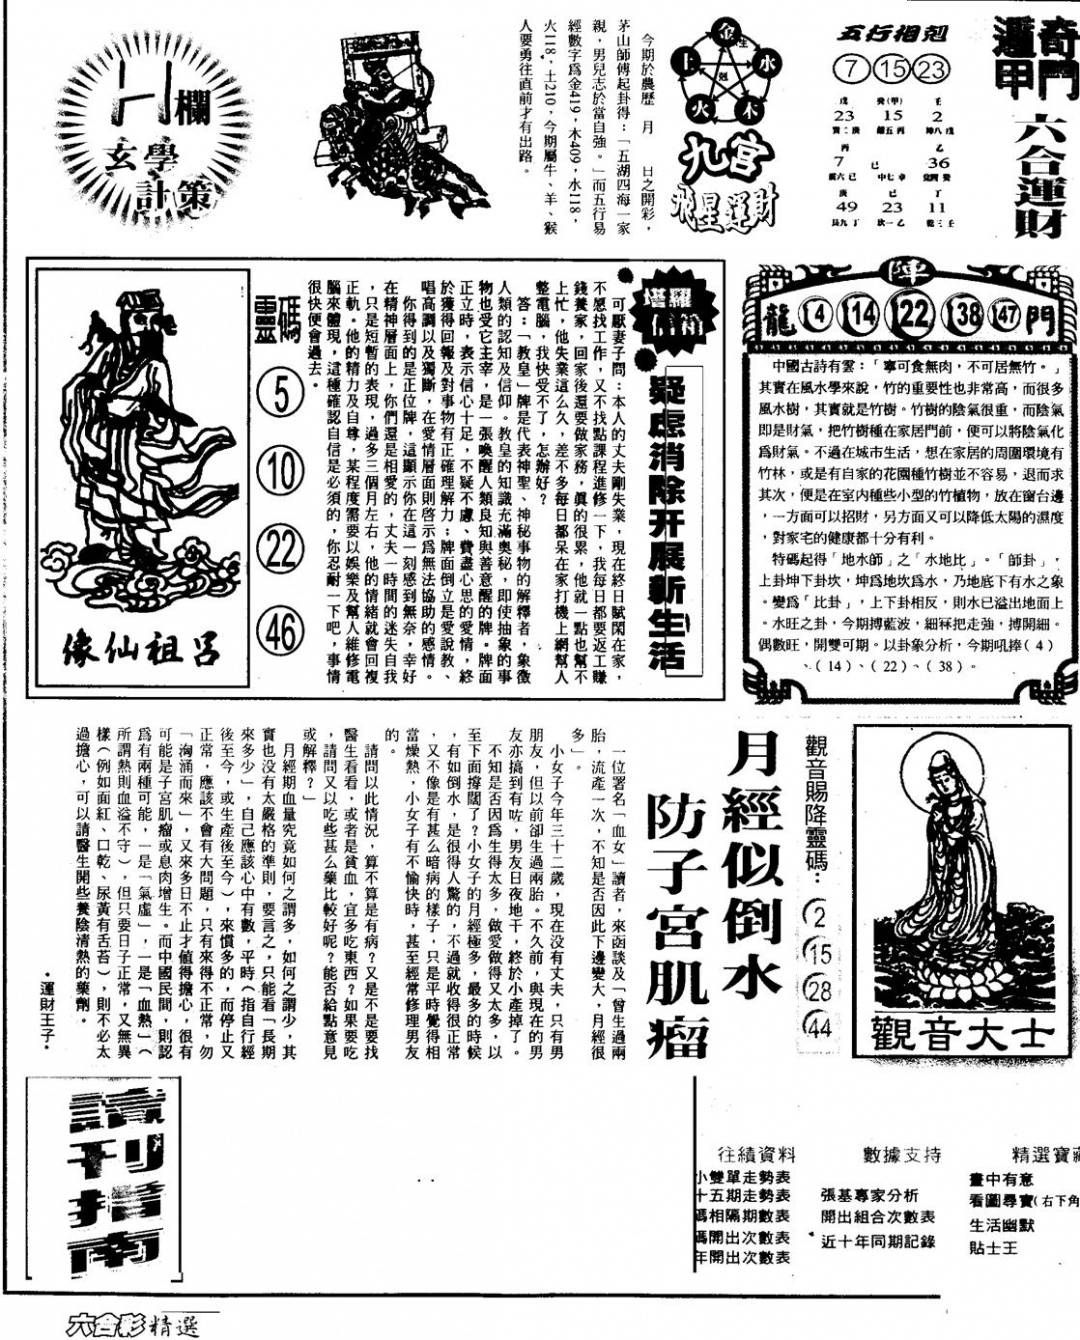 奇門遁甲
六合運財
五行相剋
7 15 23
戊 癸(甲) 壬
23 15 2
丙 乙
7 36
庚 己 丁
49 23 11
金 水 木 火 土
生
剋
九宮
飛星運財
今期於農歷 月 日之開彩，
茅山師傅起卦得：「五湖四海一家
親，男兒志於當自強。」而五行易
經數字爲金419，木409，水118，
火118，土210，今期屬牛、羊、猴
人要勇往直前才有出路。
H欄
玄學
計策
陣
龍 4 14 22 38 47 門
中國古詩有雲：「寧可食無肉，不可居無竹。」
其實在風水學來說，竹的重要性也非常高，而很多
風水樹，其實就是竹樹。竹樹的陰氣很重，而陰氣
即是財氣，把竹樹種在家居門前，便可以將陰氣化
爲財氣。不過在城市生活，想在家居的周圍環境有
竹林，或是有自家的花園種竹樹並不容易，退而求
其次，便是在室內種些小型的竹植物，放在窗台邊
，一方面可以招財，另方面又可以降低太陽的濕度
，對家宅的健康都十分有利。
特碼起得「地水師」之「水地比」。「師卦」，
上卦坤下卦坎，坤爲地坎爲水，乃地底下有水之象
。變爲「比卦」，上下卦相反，則水已溢出地面上
。水旺之卦，今期搏藍波，細冧把走強，搏開細。
偶數旺，開雙可期。以卦象分析，今期吼捧（4）
、（14）、（22）、（38）。
塔羅信箱
疑慮消除开展新生活
可厭妻子問：本人的丈夫剛失業，現在終日賦閑在家，
不愿找工作，又不找點課程進修一下，我每日都要返工賺
錢養家，回家後還要做家務，真的很累，他就一點也幫不
上忙，他失業這么久，差不多每日都呆在家打機上網幫人
整電腦，我快受不了，怎辦好？
答：「教皇」牌是代表神聖、神秘事物的解釋者，象徵
人類的認知及信仰。教皇的知識充滿奧秘，即使抽象的事
物也受它主宰，是一張喚醒人類良知與善意醒的牌。牌面
正立時，表示信心十足，不疑不慮、費盡心思的愛情，終
於獲得回報及對事物有正確理解力；牌面倒立是愛說教、
唱高調以及獨斷，在愛情層面則啓示爲無法協助的感情。
你得到的是正位牌，這顯示你在這一刻感到無奈，幸好
在精神層面上，你們還是相愛的，丈夫一時間的迷失自我
，只是短暫的表現，過多三個月左右，他的情緒就會回複
正軌。他的精力及自尊，某程度需要以娛樂及幫人維修電
腦來體現，這種確認自信是必須的，你忍耐一下吧，事情
很快便會過去。
靈碼
5
10
22
46
呂祖仙像
觀音大士
觀音賜降靈碼：
2
15
28
44
月經似倒水
防子宮肌瘤
一位署名「血女」讀者，來函談及「曾生過兩
胎，流產一次，不知是否因此下邊變大，月經很
多」。
小女子今年三十二歲，現在没有丈夫，只有男
朋友，但以前卻生過兩胎。不久前，與現在的男
友亦搞到有咗，男友日夜地干，終於小產掉了。
不知是否因爲生得太多，做愛做得又太多，以
至下面撐闊了？小女子的月經極多，最多的時候
，有如倒水，是很得人驚的，不過就收得很正常
，又不像是有甚么暗病的樣子，只是平時覺得相
當燥熱，小女子有不愉快時，甚至經常修理男友
的。
請問以此情況，算不算是有病？又是不是要找
醫生看看，或者是貧血，宜多吃東西？如果要吃
，請問又以吃些甚么藥比較好呢？能否給點意見
或解釋？」
月經期血量究竟如何之謂多，如何之謂少，其
實也没有太嚴格的準則，要言之，只能看「長期
來多少」，自己應該心中有數，平時（指自行經
後至今，或生產後至今），來慣多的，而停止又
正常，應該不會有大問題，只有來得不正常，勿
「洶涌而來」，又來多日不止才值得擔心，很有
可能是子宮肌瘤或息肉增生。而中國民間，則認
爲有兩種可能，一是「氣虛」，一是「血熱」（
所謂熱則血溢不守），但只要日子正常，又無異
樣（例如面紅、口乾、尿黃有舌苔），則不必太
過擔心，可以請醫生開些養陰清熱的藥劑。
·運財王子·
讀刊指南
往績資料
小雙單走勢表
十五期走勢表
碼相隔期數表
碼開出次數表
年開出次數表
數據支持
張基專家分析
開出組合次數表
近十年同期記錄
精選寶藏
畫中有意
看圖尋寶(右下角
生活幽默
貼士王
六合彩精選